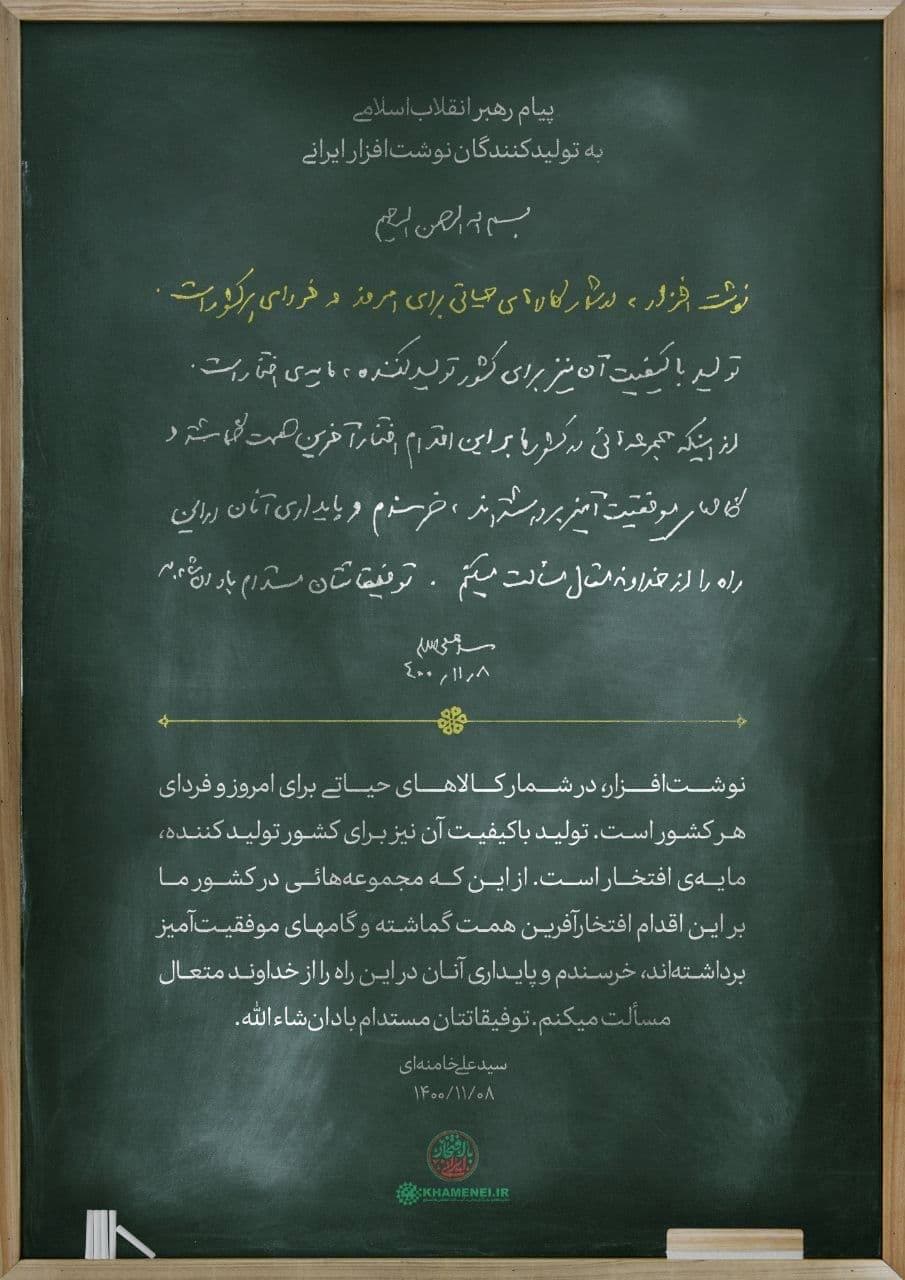 پیام رهبر انقلاب اسلامی
به تولیدکنندگان نوشت‌افزار ایرانی
بسم الله الرحمن الرحیم
نوشت افزار، در شمار کالاهای حیاتی برای امروز و فردای هر کشور است.
تولید با کیفیت آن نیز برای کشور تولیدکننده، مایه‌ی افتخار است.
از اینکه مجموعه‌هائی در کشور ما بر این اقدام افتخارآفرین همت گماشته و
گامهای موفقیت‌آمیز برداشته‌اند، خرسندم و پایداری آنان در این
راه را از خداوند متعال مسألت میکنم. توفیقاتتان مستدام باد ان‌شاءالله
۴۰۰/۱۱/۸
نوشت‌افزار، در شمار کالاهای حیاتی برای امروز و فردای
هر کشور است. تولید باکیفیت آن نیز برای کشور تولید کننده،
مایه‌ی افتخار است. از این که مجموعه‌هائی در کشور ما
بر این اقدام افتخارآفرین همت گماشته و گامهای موفقیت‌آمیز
برداشته‌اند، خرسندم و پایداری آنان در این راه را از خداوند متعال
مسألت میکنم. توفیقاتتان مستدام باد ان‌شاءالله.
سیدعلی خامنه‌ای
۱۴۰۰/۱۱/۰۸
با افتخار ایرانی
KHAMENEI.IR